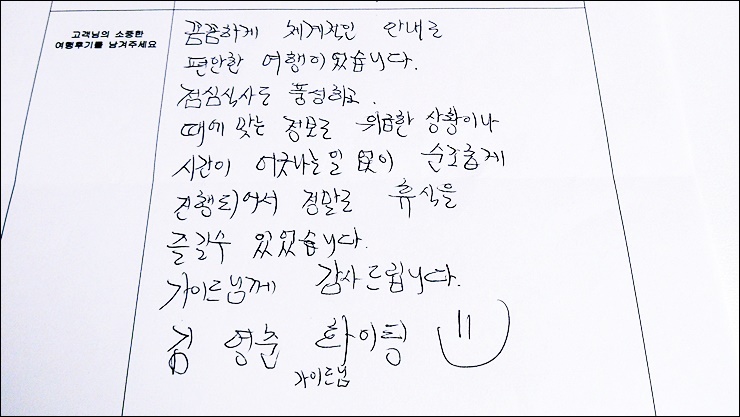 고객님의 소중한
여행후기를 남겨주세요
꼼꼼하게 체계적인 안내로
편안한 여행이었습니다.
점심식사도 풍성하고.
때에 맞는 정보로 위급한 상황이나
시간이 어긋나는일 없이 순조롭게
진행되어서 정말로 휴식을
즐길수 있었습니다.
가이드님께 감사드립니다.
김영춘 화이팅
가이드님